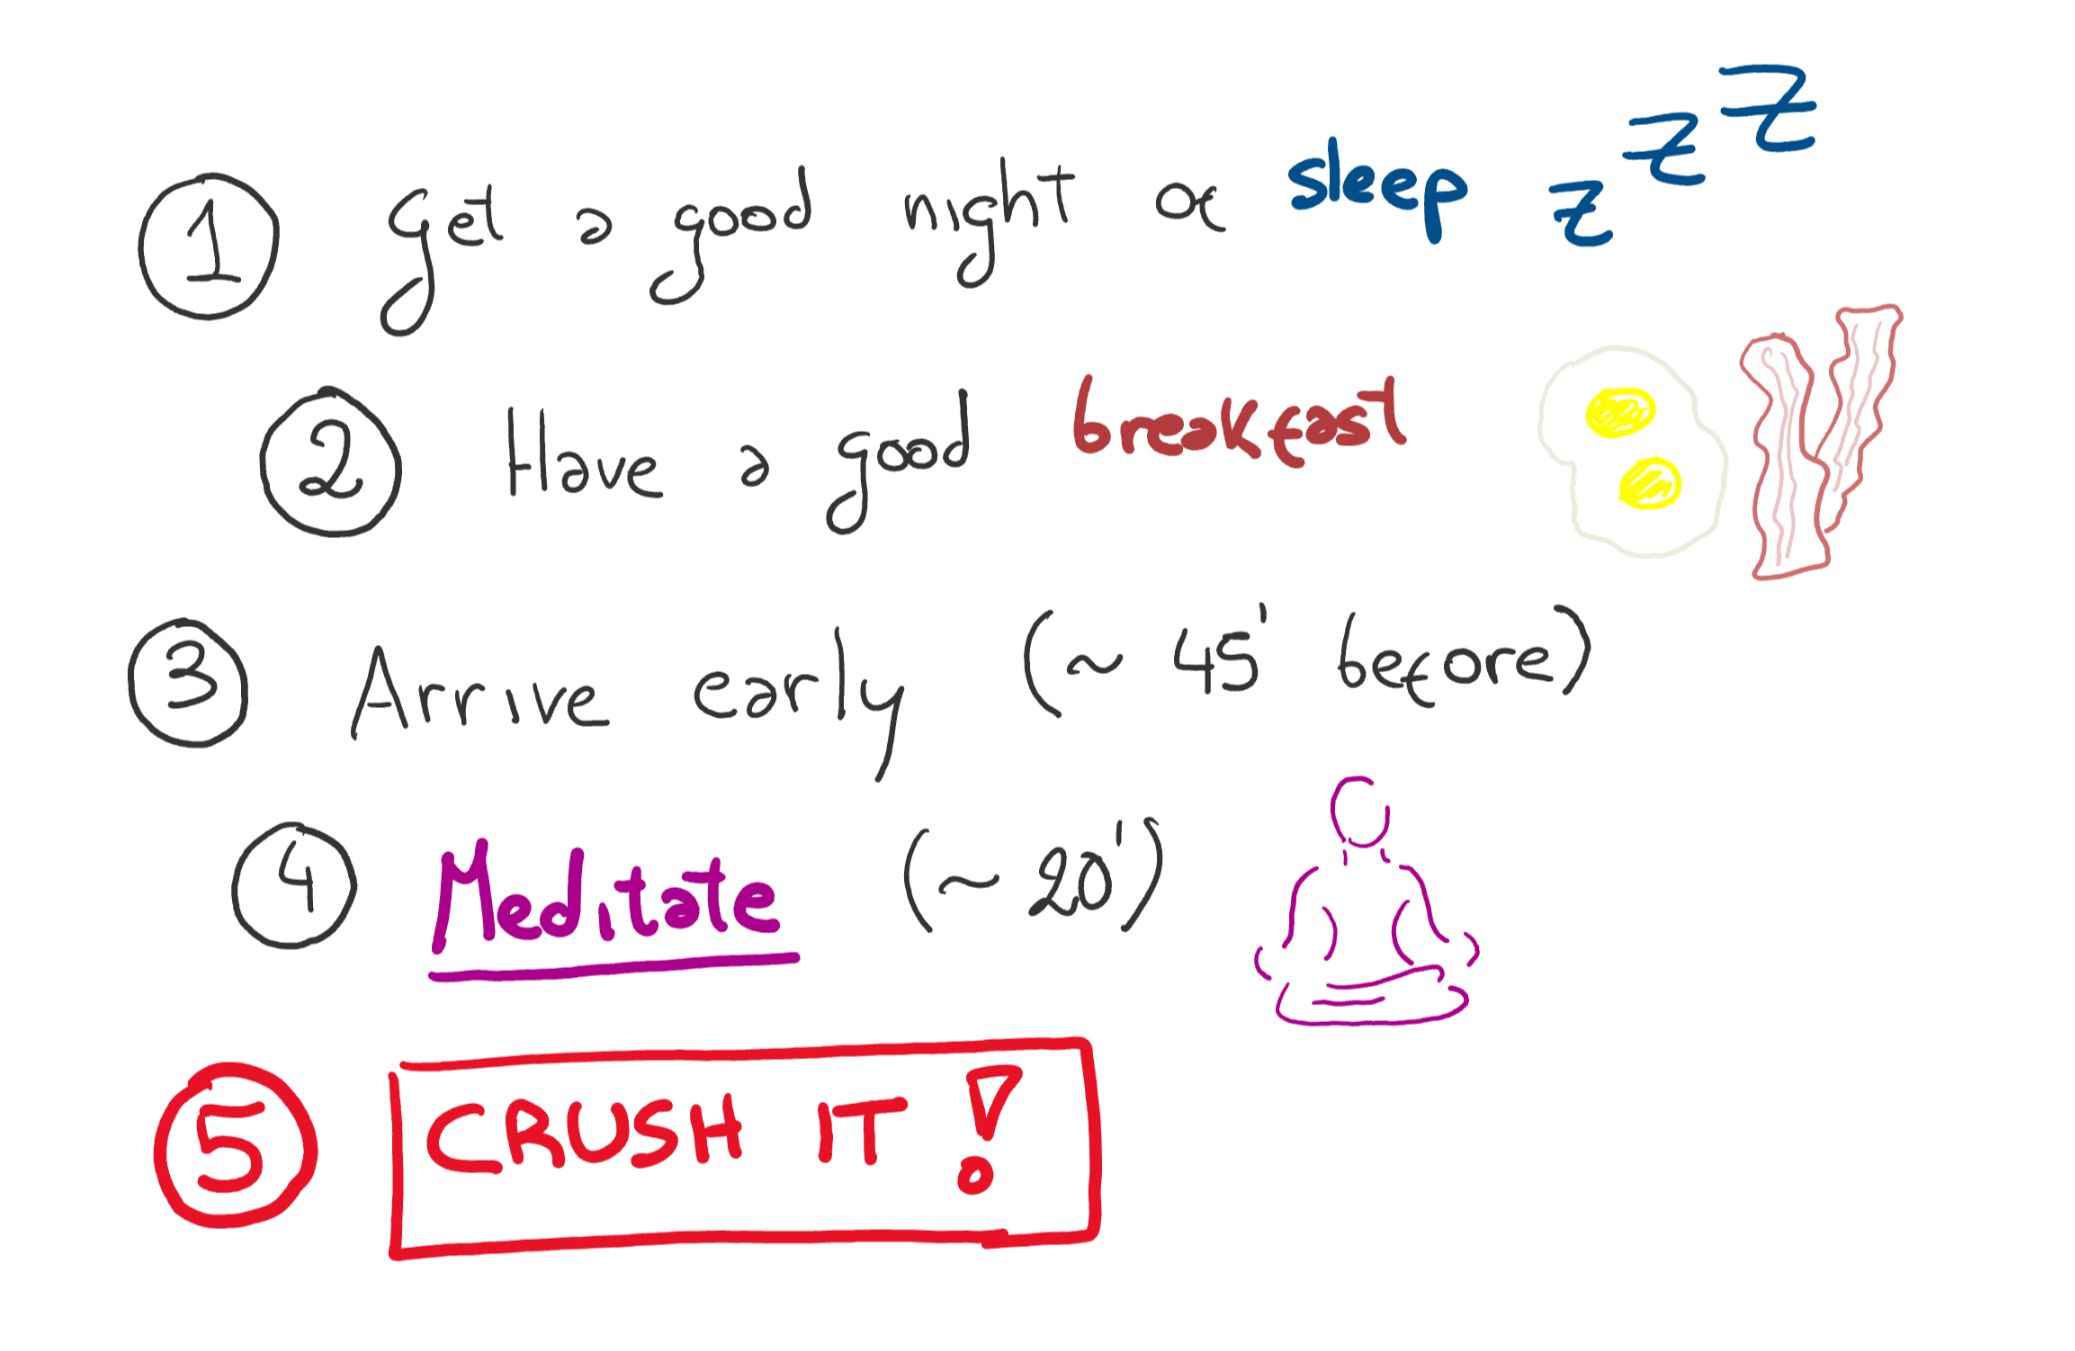 1 Get a good night of sleep z z z
2 Have a good breakfast
3 Arrive early (~ 45' before)
4 Meditate (~ 20')
5 CRUSH IT!